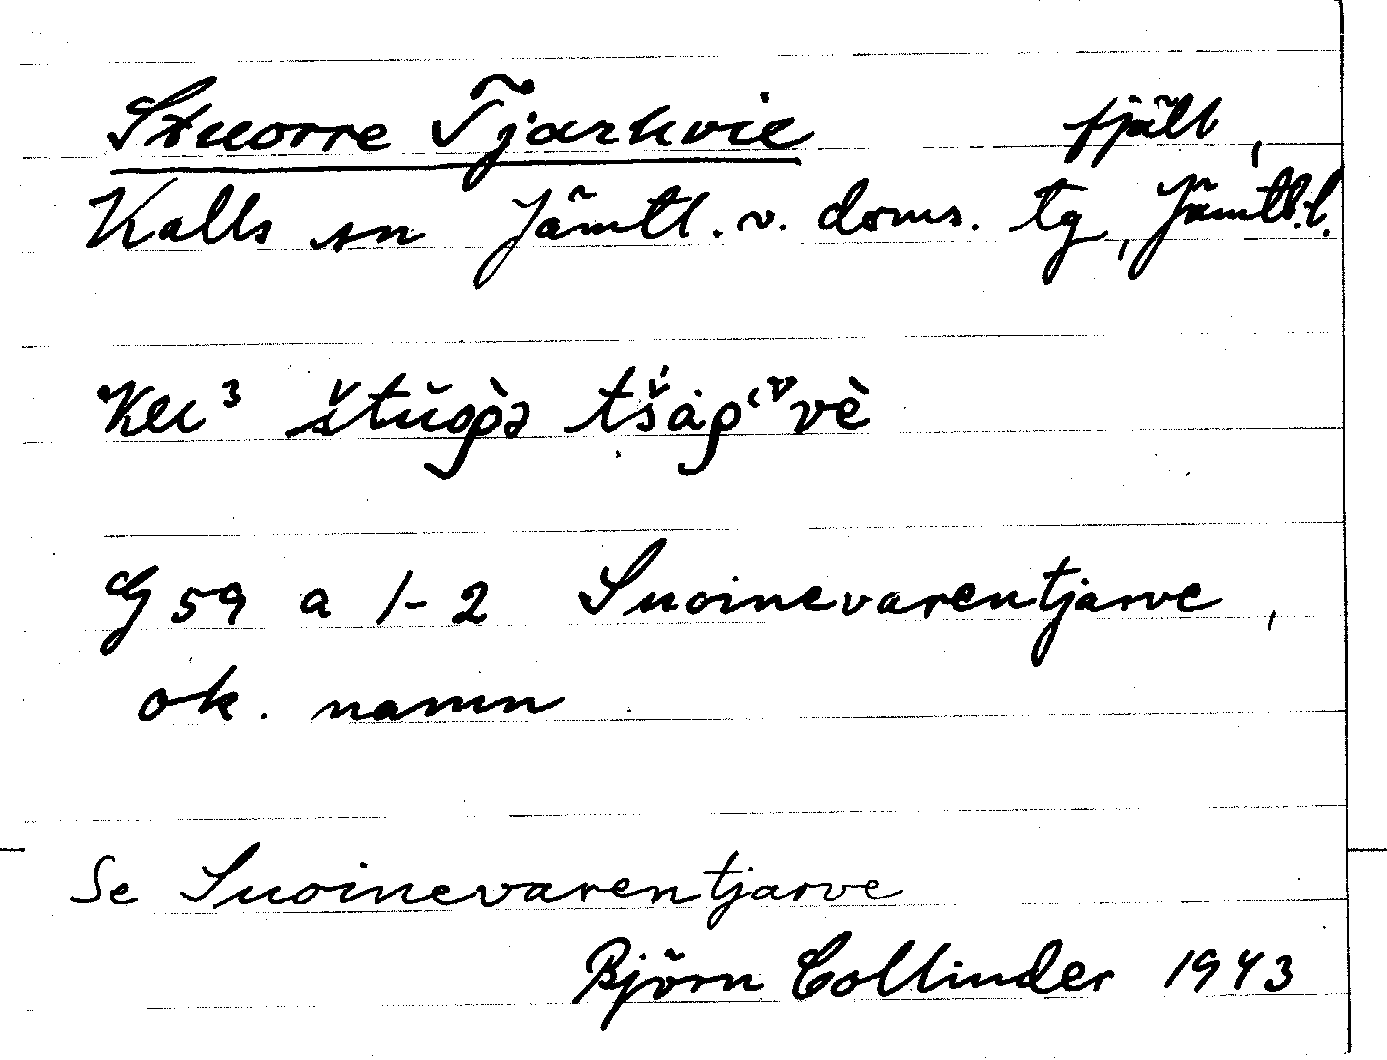 Stuorre Tjarkvie fjäll,
Kalls sn Jämtl. v. doms. tg, Jämtl. l.
Kll³
G 59 a 1-2 Suoinevarentjarve,
ok. namn
Se Suoinevarentjarve
Björn Collinder 1943